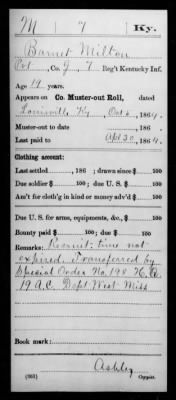 M 7 Ky.
Barnet Milton
Pvt, Co. J, 7 Reg't Kentucky Inf.
Age 19 years.
Appears on Co. Muster-out Roll, dated
Louisville, Ky Oct 4, 1864.
Muster-out to date , 186 .
Last paid to Apr 30, 1864.
Clothing account:
Last settled , 186 ; drawn since $ 100
Due soldier $ 100; due U. S. $ 100
Am't for cloth'g in kind or money adv'd $ 100
Due U. S. for arms, equipments, &c., $ 100
Bounty paid $ 100; due $ 100
Remarks: Recruit: time not
expired. Transferred by
Special Order No. 198 H. Q.
19 A.C. Dept West Miss
Book mark:
Ashley
(361) Copyist.